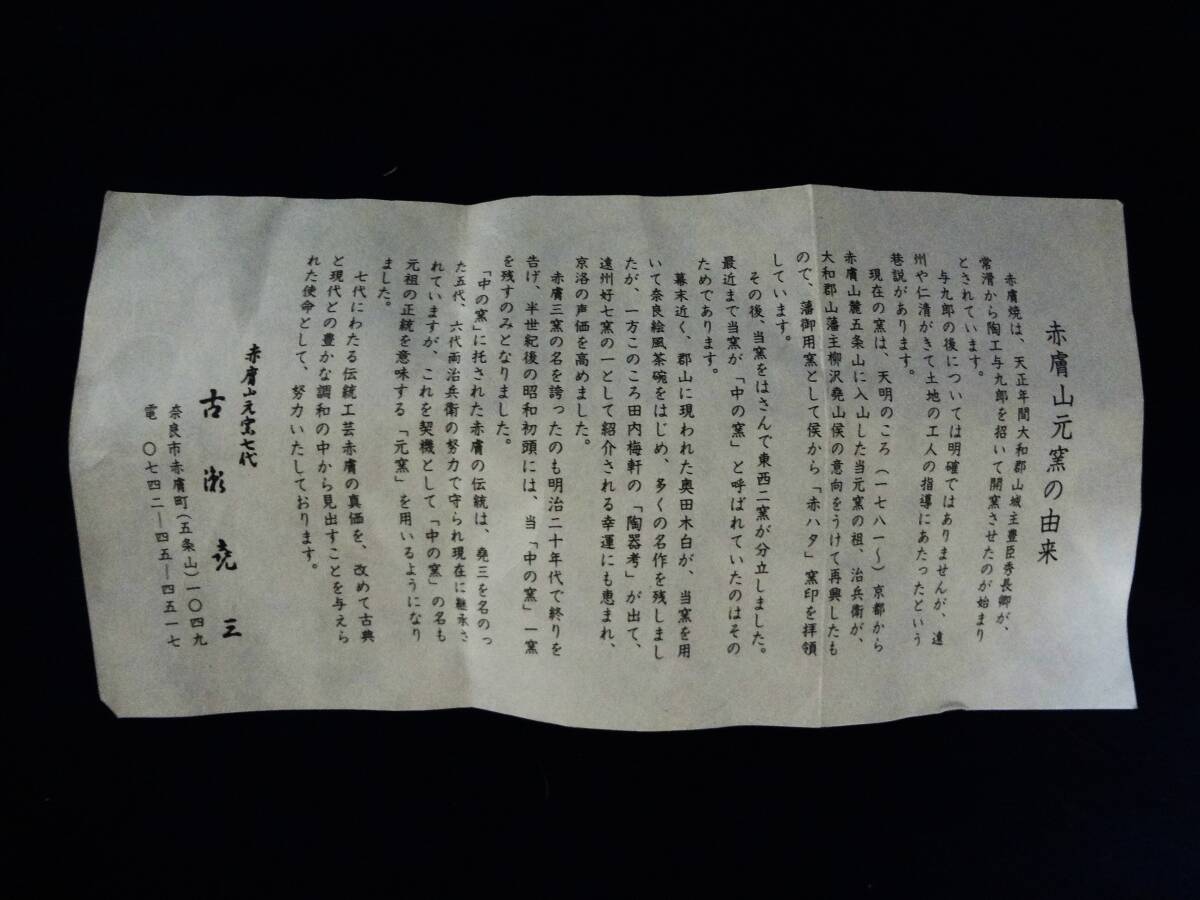 赤膚山元窯の由来
赤膚焼は、天正年間大和郡山城主豊臣秀長卿が、
常滑から陶工与九郎を招いて開窯させたのが始まり
とされています。
与九郎の後については明確ではありませんが、遠
州や仁清がきて土地の工人の指導にあたったという
巷説があります。
現在の窯は、天明のころ（一七八一～）京都から
赤膚山麓五条山に入山した当元窯の祖、治兵衛が、
大和郡山藩主柳沢堯山侯の意向をうけて再興したも
ので、藩御用窯として侯から「赤ハタ」窯印を拝領
しています。
その後、当窯をはさんで東西二窯が分立しました。
最近まで当窯が「中の窯」と呼ばれていたのはその
ためであります。
幕末近く、郡山に現われた奥田木白が、当窯を用
いて奈良絵風茶碗をはじめ、多くの名作を残しまし
たが、一方このころ田内梅軒の「陶器考」が出て、
遠州好七窯の一として紹介される幸運にも恵まれ、
京洛の声価を高めました。
赤膚三窯の名を誇ったのも明治二十年代で終りを
告げ、半世紀後の昭和初頭には、当「中の窯」一窯
を残すのみとなりました。
「中の窯」に托された赤膚の伝統は、堯三を名のっ
た五代、六代両治兵衛の努力で守られ現在に継承さ
れていますが、これを契機として「中の窯」の名も
元祖の正統を意味する「元窯」を用いるようになり
ました。
七代にわたる伝統工芸赤膚の真価を、改めて古典
と現代との豊かな調和の中から見出すことを与えら
れた使命として、努力いたしております。
赤膚山元窯七代
古瀬堯三
奈良市赤膚町（五条山）一〇四九
電 〇七四二―四五―四五一七